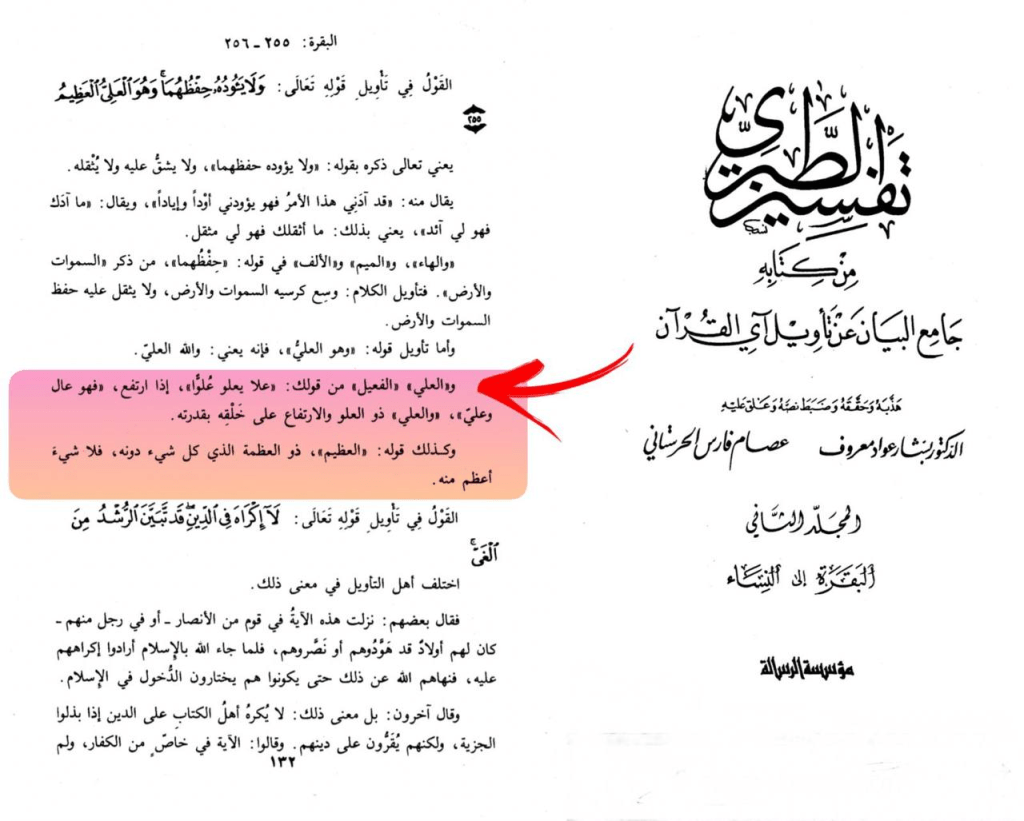 تفسير الطبري
من كتابه
جامع البيان عن تأويل آي القرآن
هذبه وحققه وضبط نصه وعلق عليه
الدكتور بشار عواد معروف عصام فارس الحرستاني
المجلد الثاني
البقرة إلى النساء
مؤسسة الرسالة
البقرة: ٢٥٥ - ٢٥٦
القَوْلُ فِي تَأْوِيلِ قَوْلِهِ تَعَالَى: وَلَا يَـُٔودُهُۥ حِفْظُهُمَا ۚ وَهُوَ ٱلْعَلِىُّ ٱلْعَظِيمُ
٢٥٥
يعني تعالى ذكره بقوله: «ولا يؤوده حفظهما»، ولا يشقُّ عليه ولا يُثْقله.
يقال منه: «قد آدَنِي هذا الأمرُ فهو يؤودني أوْداً وإياداً»، ويقال: «ما آدَك
فهو لي آئد»، يعني بذلك: ما أثقلك فهو لي مثقل.
«والهاء»، و«الميم» و«الألف» في قوله: «حِفْظُهما»، من ذكر «السموات
والأرض». فتأويل الكلام: وسِع كرسيه السموات والأرض، ولا يثقل عليه حفظ
السموات والأرض.
وأما تأويل قوله: «وهو العليُّ»، فإنه يعني: والله العليّ.
و«العلي» «الفعيل» من قولك: «علا يعلو عُلوًّا»، إذا ارتفع، «فهو عال
وعليّ»، «والعلي» ذو العلو والارتفاع على خَلْقِه بقدرته.
وكذلك قوله: «العظيم»، ذو العظمة الذي كل شيء دونه، فلا شيءَ
أعظم منه.
القَوْلُ فِي تَأْوِيلِ قَوْلِهِ تَعَالَى: لَآ إِكْرَاهَ فِى ٱلدِّينِ ۖ قَد تَّبَيَّنَ ٱلرُّشْدُ مِنَ
ٱلْغَىِّ ۚ
اختلف أهل التأويل في معنى ذلك.
فقال بعضهم: نزلت هذه الآيةُ في قوم من الأنصار - أو في رجل منهم -
كان لهم أولادٌ قد هَوَّدُوهم أو نَصَّروهم، فلما جاء الله بالإسلام أرادوا إكراههم
عليه، فنهاهم الله عن ذلك حتى يكونوا هم يختارون الدُّخول في الإسلام.
وقال آخرون: بل معنى ذلك: لا يُكرهُ أهلُ الكتابِ على الدين إذا بذلوا
الجزية، ولكنهم يُقَرُّون على دينهم. وقالوا: الآية في خاصٍّ من الكفار، ولم
١٣٢